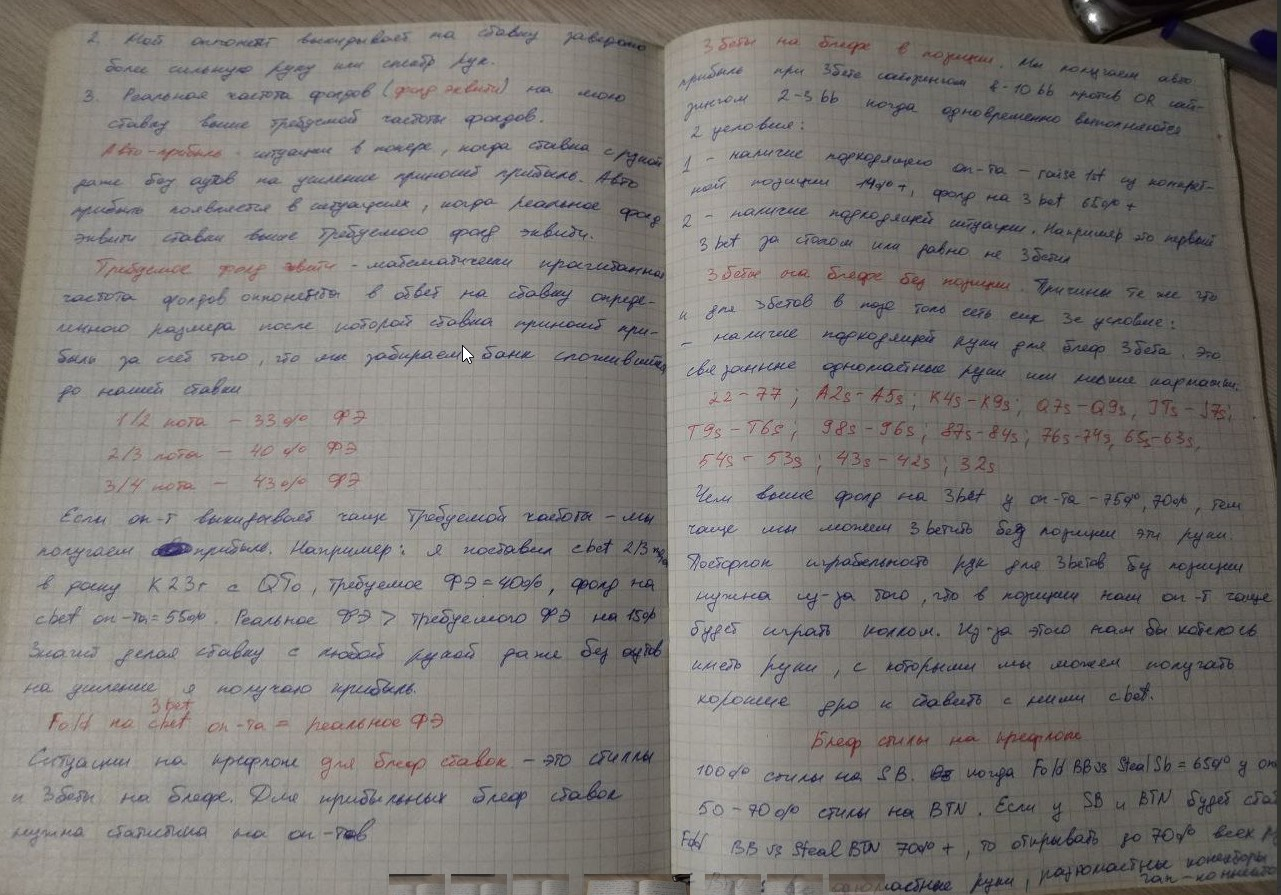 2. Мой оппонент выкидывает на ставку заведомо
более сильную руку или спектр рук.
3. Реальная частота фолдов (фолд эквити) на мою
ставку выше требуемой частоты фолдов.
Авто-прибыль - ситуации в покере, когда ставка с рукой
даже без аутов на усиление приносит прибыль. Авто
прибыль появляется в ситуациях, когда реальное фолд
эквити ставки выше требуемого фолд эквити.
Требуемое фолд эквити - математически просчитанная
частота фолдов оппонента в ответ на ставку опреде-
ленного размера после которой ставка приносит при-
быль за счёт того, что мы забираем банк сложившийся
до нашей ставки
1/2 пота - 33% ФЭ
2/3 пота - 40% ФЭ
3/4 пота - 43% ФЭ
Если оп-т выкидывает чаще требуемой частоты - мы
получаем прибыль. Например: я поставил cbet 2/3 пота
в доску K23r с QTo, требуемое ФЭ = 40%, фолд на
cbet оп-та = 55%. Реальное ФЭ > требуемого ФЭ на 15%
Значит делая ставку с любой рукой даже без аутов
на усиление я получаю прибыль.
3bet
Fold на cbet оп-та = реальное ФЭ
Ситуации на префлопе для блеф ставок - это стиллы
и 3беты на блефе. Для прибыльных блеф ставок
нужна статистика на оп-тов
3беты на блефе в позиции. Мы получаем авто
прибыль при 3бете сайзингом 8-10 bb против OR сай-
зингом 2-3 bb когда одновременно выполняются
2 условие:
1 - наличие подходящего оп-та - raise 1st из конкрет-
ной позиции 14%+, фолд на 3bet 65%+
2 - наличие подходящей ситуации. Например это первый
3bet за столом или давно не 3бетил
3беты на блефе без позиции. Причины те же что
и для 3бетов в позе толь есть еще 3е условие:
- наличие подходящей руки для блеф 3бета. Это
связанные одномастные руки или низкие карманки.
22-77; A2s-A5s; K4s-K9s; Q7s-Q9s, JTs-J7s;
T9s-T6s; 98s-96s; 87s-84s; 76s-74s, 65s-63s,
54s-53s; 43s-42s; 32s
Чем выше фолд на 3bet у оп-та - 75%, 70%, тем
чаще мы можем 3бетить без позиции эти руки.
Постфлоп играбельность рук для 3бетов без позиции
нужна из-за того, что в позиции наш оп-т чаще
будет играть коллом. Из-за этого нам бы хотелось
иметь руки, с которыми мы можем получать
хорошие дро и ставить с ними cbet.
Блеф стилы на префлопе
100% стилы на SB. когда Fold BB vs Steal Sb = 65% у оп
50-70% стилы на BTN. Если у SB и BTN будет стат
Fold BB vs Steal BTN 70%+, то открывать до 70% всех
одномастные руки, разномастные конекторы
гап-коннекто